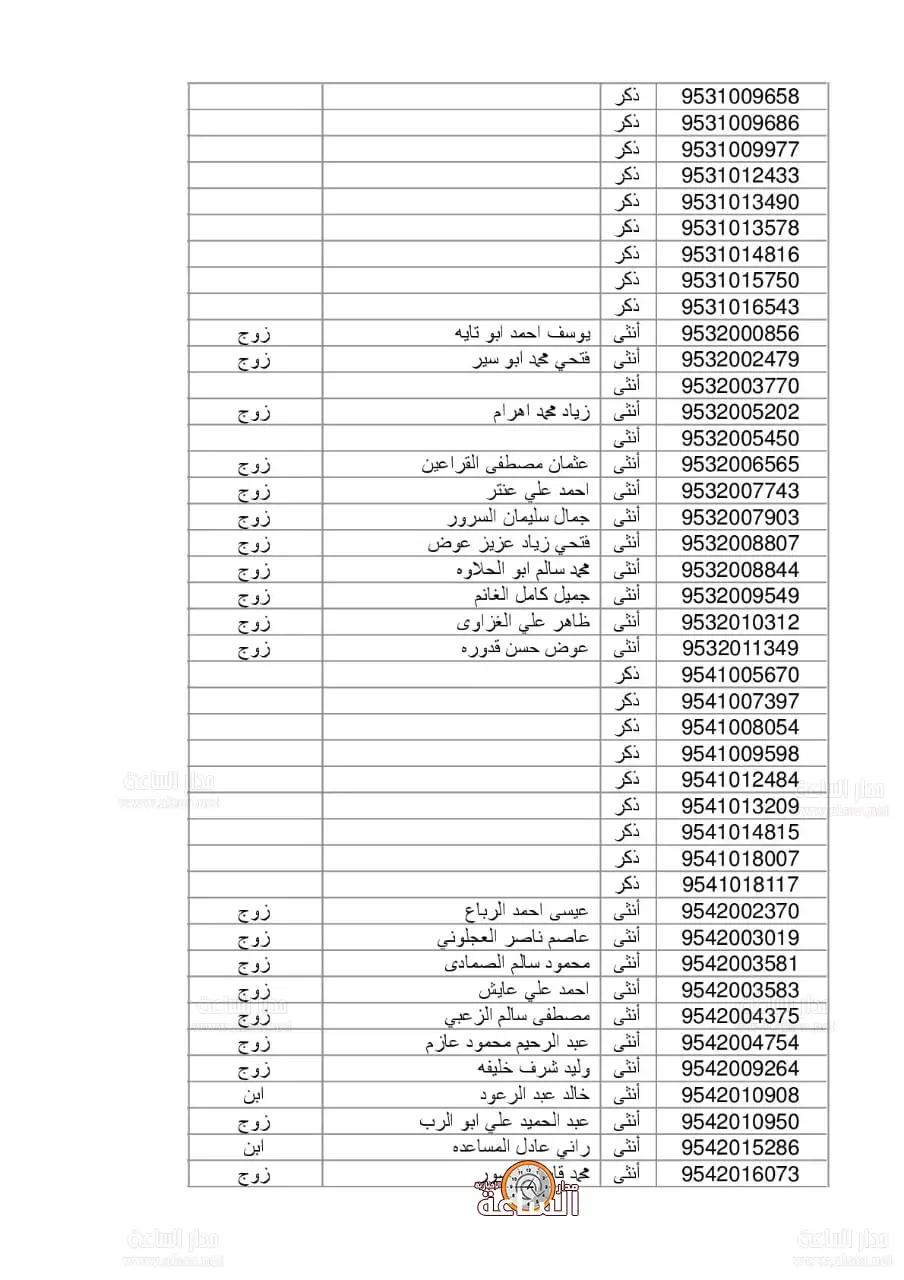 9531009658 ذكر
9531009686 ذكر
9531009977 ذكر
9531012433 ذكر
9531013490 ذكر
9531013578 ذكر
9531014816 ذكر
9531015750 ذكر
9531016543 ذكر
9532000856 أنثى يوسف احمد ابو تايه زوج
9532002479 أنثى فتحي محمد ابو سير زوج
9532003770 أنثى
9532005202 أنثى زياد محمد اهرام زوج
9532005450 أنثى
9532006565 أنثى عثمان مصطفى القراعين زوج
9532007743 أنثى احمد علي عنتر زوج
9532007903 أنثى جمال سليمان السرور زوج
9532008807 أنثى فتحي زياد عزيز عوض زوج
9532008844 أنثى محمد سالم ابو الحلاوه زوج
9532009549 أنثى جميل كامل الغانم زوج
9532010312 أنثى ظاهر علي الغزاوى زوج
9532011349 أنثى عوض حسن قدوره زوج
9541005670 ذكر
9541007397 ذكر
9541008054 ذكر
9541009598 ذكر
9541012484 ذكر
9541013209 ذكر
9541014815 ذكر
9541018007 ذكر
9541018117 ذكر
9542002370 أنثى عيسى احمد الرباع زوج
9542003019 أنثى عاصم ناصر العجلوني زوج
9542003581 أنثى محمود سالم الصمادى زوج
9542003583 أنثى احمد علي عايش زوج
9542004375 أنثى مصطفى سالم الزعبي زوج
9542004754 أنثى عبد الرحيم محمود عازم زوج
9542009264 أنثى وليد شرف خليفه زوج
9542010908 أنثى خالد عبد الرعود ابن
9542010950 أنثى عبد الحميد علي ابو الرب زوج
9542015286 أنثى راني عادل المساعده ابن
9542016073 أنثى محمد زوج
مدار الساعة الإخبارية
مدار الساعة
www.alsaa.net
مدار الساعة
www.alsaa.net
مدار الساعة
مدار الساعة
مدار الساعة
www.alsaa.net
مدار الساعة
www.alsaa.net